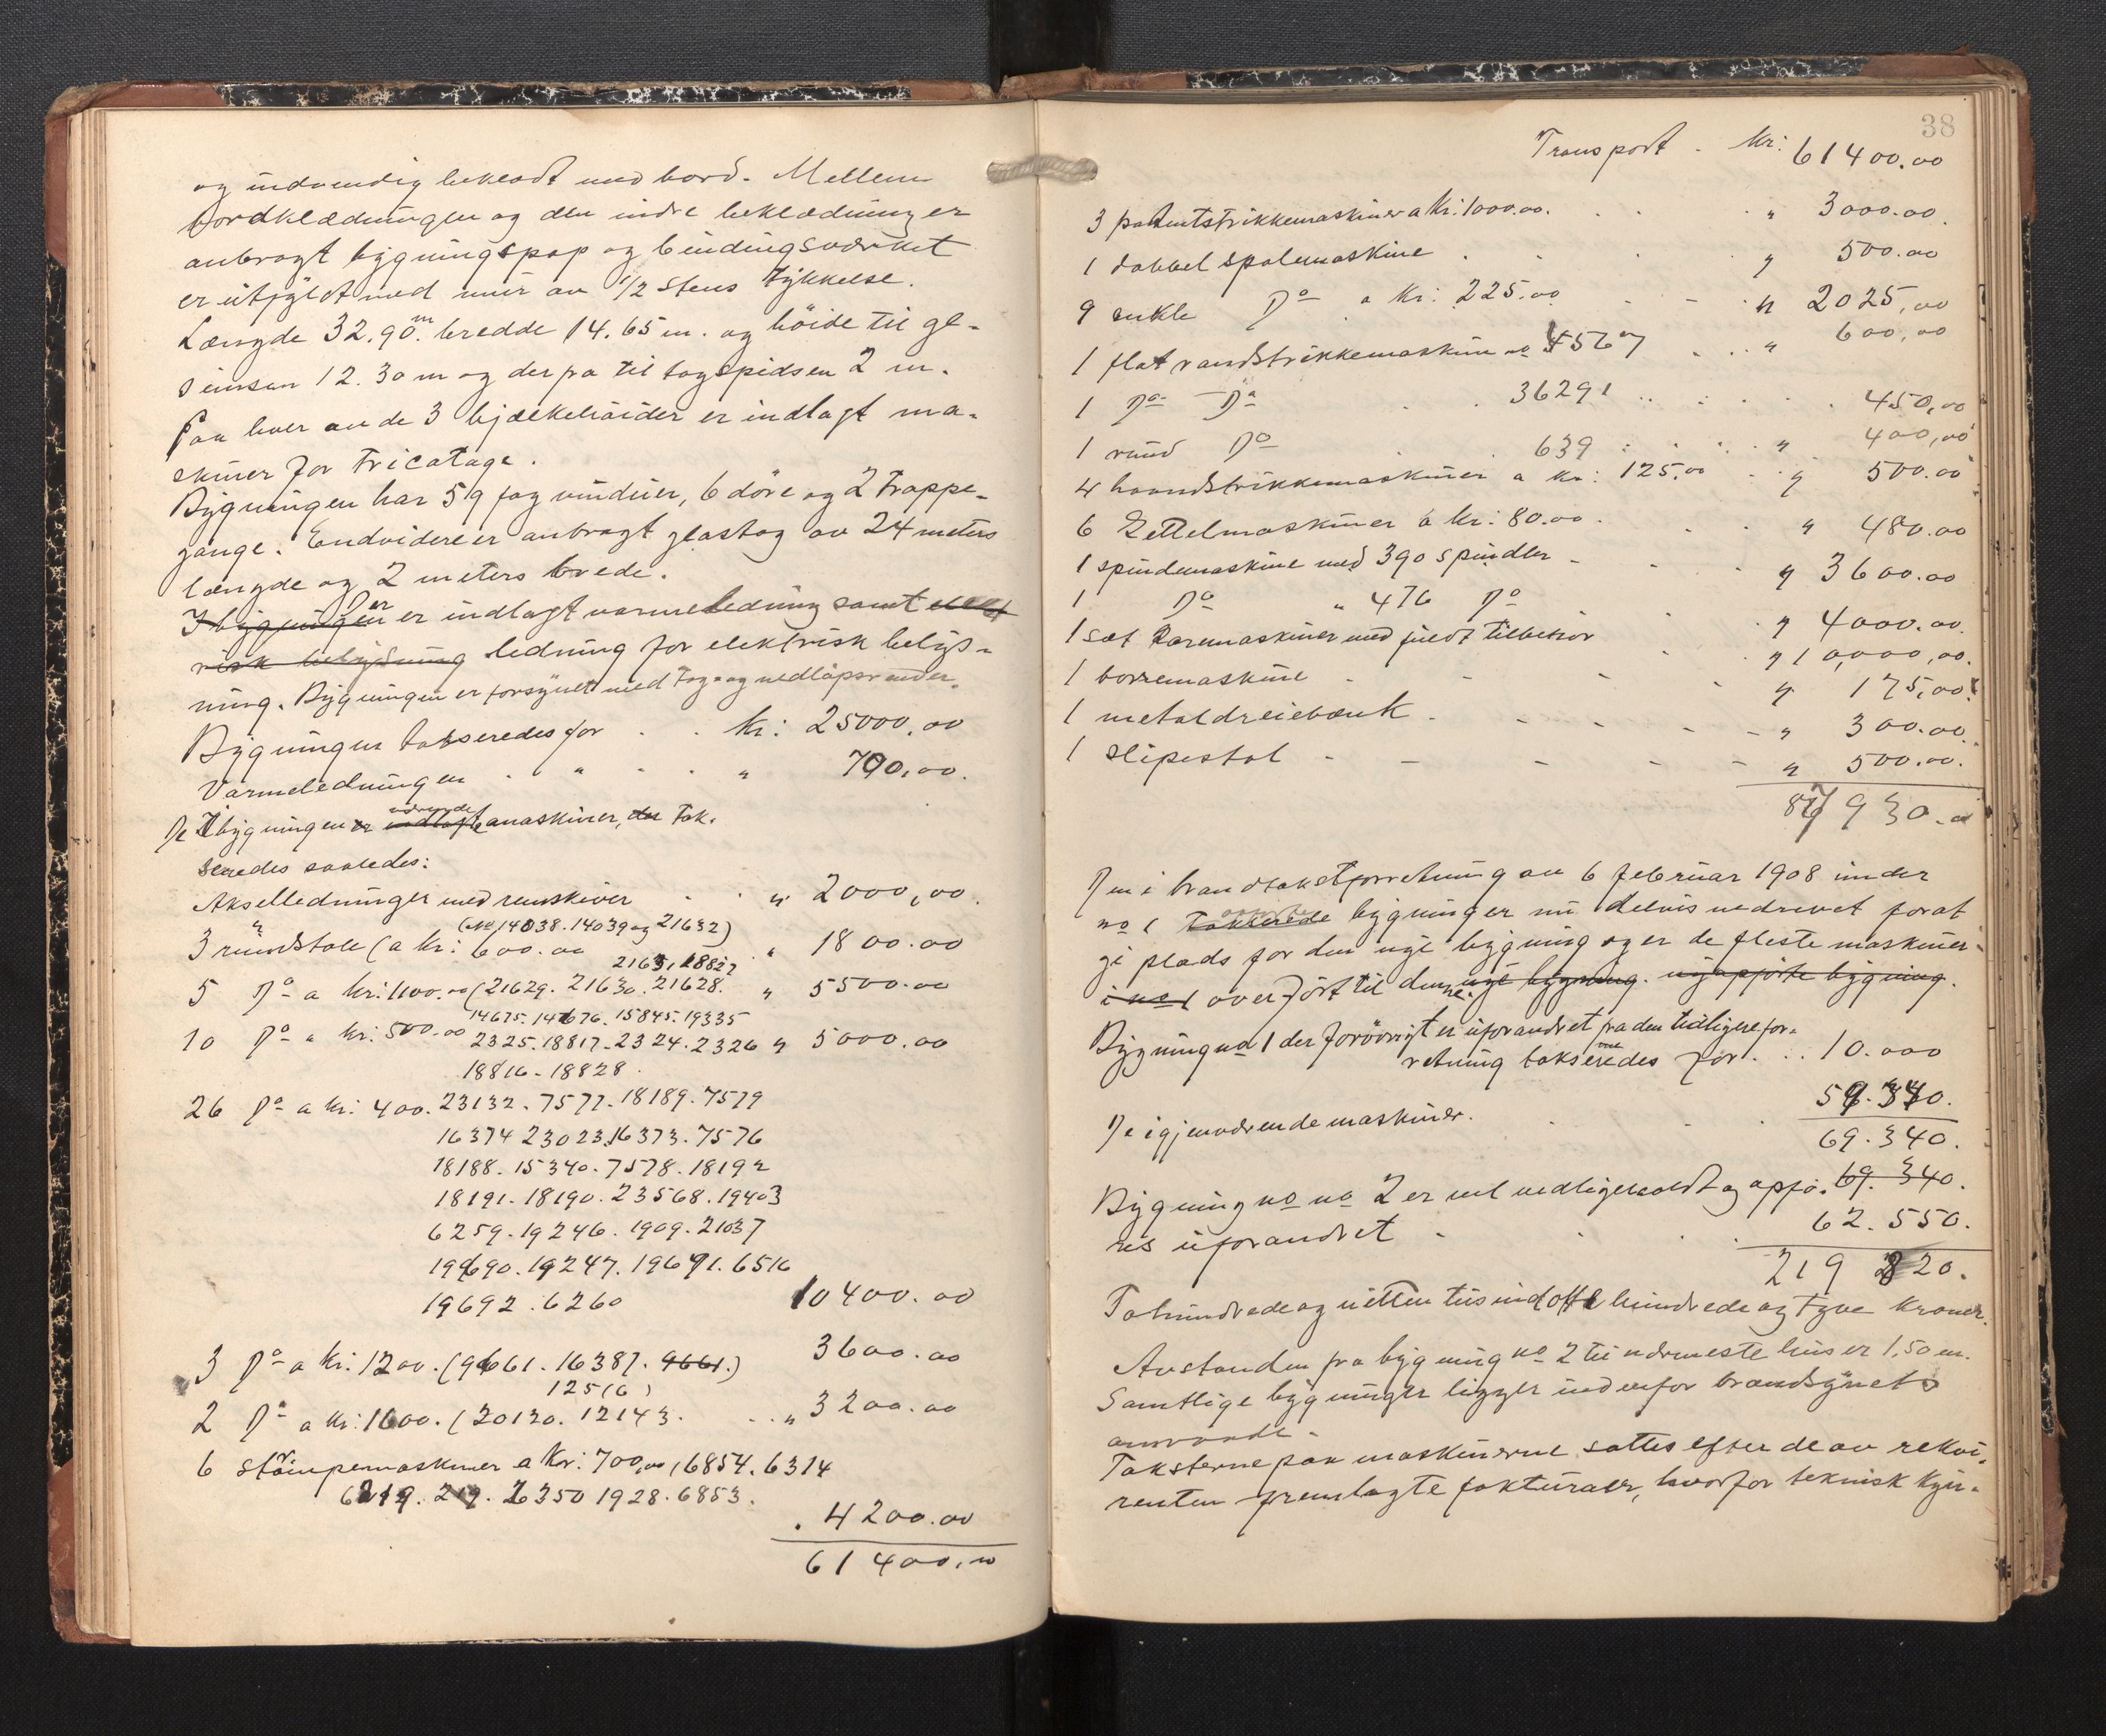 og indvendig beklædt med bord. Mellem
bordklædningen og den indre beklædning er
anbragt bygningspap og bindingsverket
er utfyldt med mur av 1/2 stens tykkelse.
Længde 32.90 m. bredde 14.65 m. og höide til ge-
simsen 12.30 m og derfra til tagspidsen 2 m.
Paa hver av de 3 bjælkehöider er indlagt ma-
skiner for tricotage.
Bygningen har 59 fag vinduer, 6 döre og 2 trappe-
gange. Endvidere er anbragt glastag av 24 meters
længde og 2 meters brede.
I bygningen Der er indlagt varmeledning samt elekt
risk belysning ledning for elektrisk belys-
ning. Bygningen er forsynet med tag- og nedlöpsrender.
Bygningen takseredes for . . kr: 25000,00
Varmeledningen . " . . " 700,00.
De I bygningen er indlagte værende maskiner, der tak-
seredes saaledes:
Akselledninger med remskiver . . " 2000,00.
(No 14038.14039 og 21632)
3 rundstole (a kr: 600.00 . " 1800.00
21631, 18827
5 Do a kr: 1100.00 (21629. 21630. 21628. " 5500.00
14675. 14676. 15845. 19335
10 Do a kr: 500.00 2325. 18817. 2324. 2326 " 5000.00
18816 - 18828.
26 Do a kr: 400. 23132. 7577. 18189. 7579
16374 23023. 16373. 7576
18188. 15340. 7578. 18192
18191. 18190. 23568. 19403
6259. 19246. 1909. 21037
19690. 19247. 19691. 6516
19692. 6260 10400.00
3 Do a kr: 1200. (9661. 16387. 9661.) 3600.00
12516)
2 Do a kr: 1600. (20120. 12143. . . " 3200.00
6 strömpemaskiner a kr: 700,00 (6854. 6314
6219. 219. 6350 1928. 6853.
. 4200.00
61400,00
38
Transport - kr: 61400.00
3 patentstrikkemaskiner a kr: 1000.00. . . " 3000.00.
1 dobbel spolemaskine . . . " 500.00
9 enkle Do a kr: 225.00 - - " 2025,00
1 flat randstrikkemaskin no 4567 . . . " 600,00
1 Do Do . 36291 . . . . . 450,00
1 rund Do . 639 . . . . " 400,00
4 haandstrikkemaskiner a kr: 125.00 . . " 500.00
6 Zettelmaskiner a kr: 80.00. . . " 480.00
1 spindemaskine med 390 spindler - . . " 3600.00
1 Do " 476 Do . " 4000.00.
1 sæt karemaskiner med fuldt tilbehör . " 10,000,00.
1 borremaskine - - - - " 175,00.
1 metaldreiebænk . - - - - " 300.00.
1 slipestol - - - - - " 500.00.
87930.00
De i brandtakstforretning av 6 februar 1908 under
no 1 takserede bygninger nu delvis nedrevet forat
gi plads for den nye bygning og er de fleste maskiner
i no 1 overfört til denne. nye bygning. nyopførte bygning.
Bygning no 1 der forövrigt er uforandret fra den tidligere for-
retning takseredes nu for . . . 10.000
De igjenværende maskiner. . . . 59.340.
69.340.
Bygning no no 2 er vel vedligeholdt og opfö- 69.340.
res uforandret . . . . 62.550.
219 820.
Tohundrede og nitten tusind otte hundrede og tyve kroner.
Avstanden fra bygning no 2 til nærmeste hus er 1,50 m.
Samtlige bygninger ligger indenfor brandsynets
omraade.
Taksterne paa maskinerne sattes efter de av rekvi-
renten fremlagte fakturaer, hvorfor teknisk kyn-